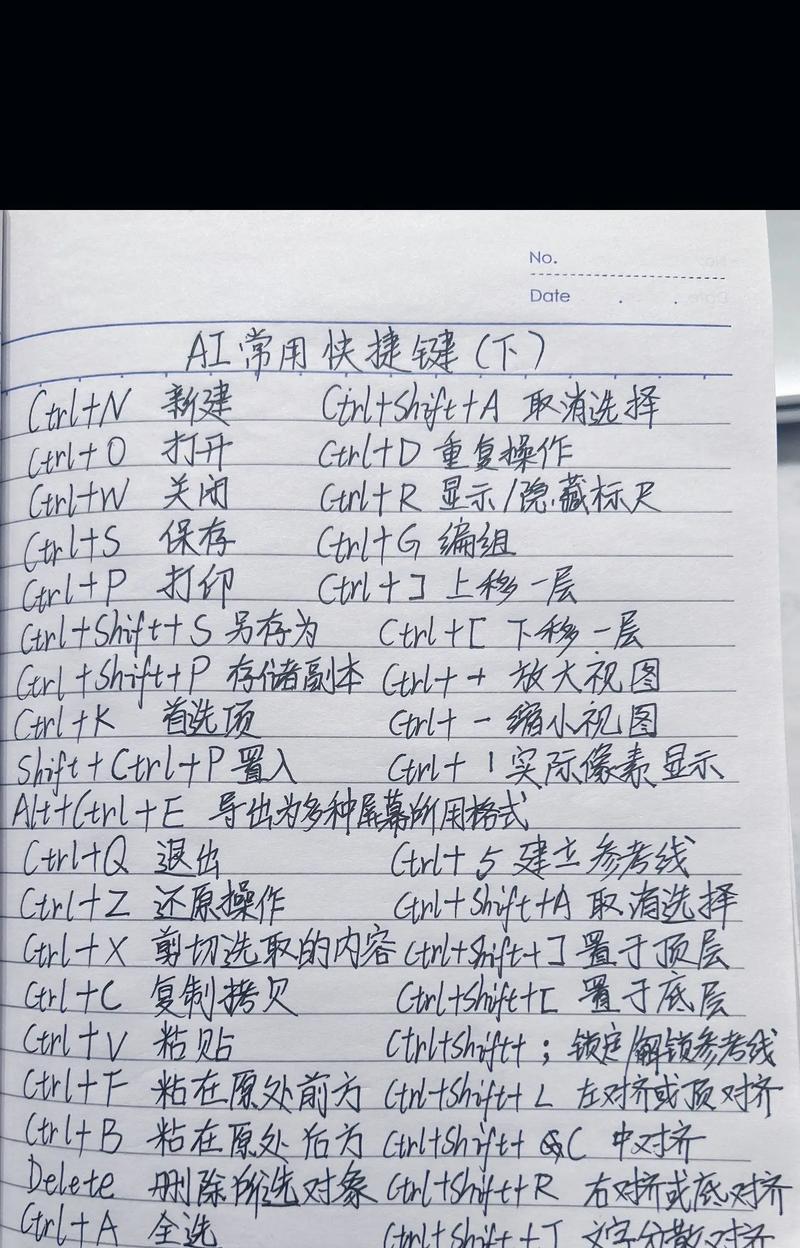 No.
Date
AI常用快捷键(下)
Ctrl+N 新建 Ctrl+Shift+A 取消选择
Ctrl+O 打开 Ctrl+D 重复操作
Ctrl+W 关闭 Ctrl+R 显示/隐藏标尺
Ctrl+S 保存 Ctrl+G 编组
Ctrl+P 打印 Ctrl+] 上移一层
Ctrl+Shift+S 另存为 Ctrl+[ 下移一层
Ctrl+Shift+P 存储副本 Ctrl++ 放大视图
Ctrl+K 首选项 Ctrl+- 缩小视图
Shift+Ctrl+P 置入 Ctrl+1 实际像素显示
Alt+Ctrl+E 导出为多种屏幕所用格式
Ctrl+Q 退出 Ctrl+5 建立参考线
Ctrl+Z 还原操作 Ctrl+Shift+A 取消选择
Ctrl+X 剪切选取的内容 Ctrl+Shift+] 置于顶层
Ctrl+C 复制拷贝 Ctrl+Shift+[ 置于底层
Ctrl+V 粘贴 Ctrl+Shift+; 锁定/解锁参考线
Ctrl+F 粘在原处前方 Ctrl+Shift+L 左对齐或顶对齐
Ctrl+B 粘在原处后方 Ctrl+Shift+C 中对齐
Delete 删除所选对象 Ctrl+Shift+R 右对挤或底对齐
Ctrl+A 全选 Ctrl+Shift+J 文字分散对齐